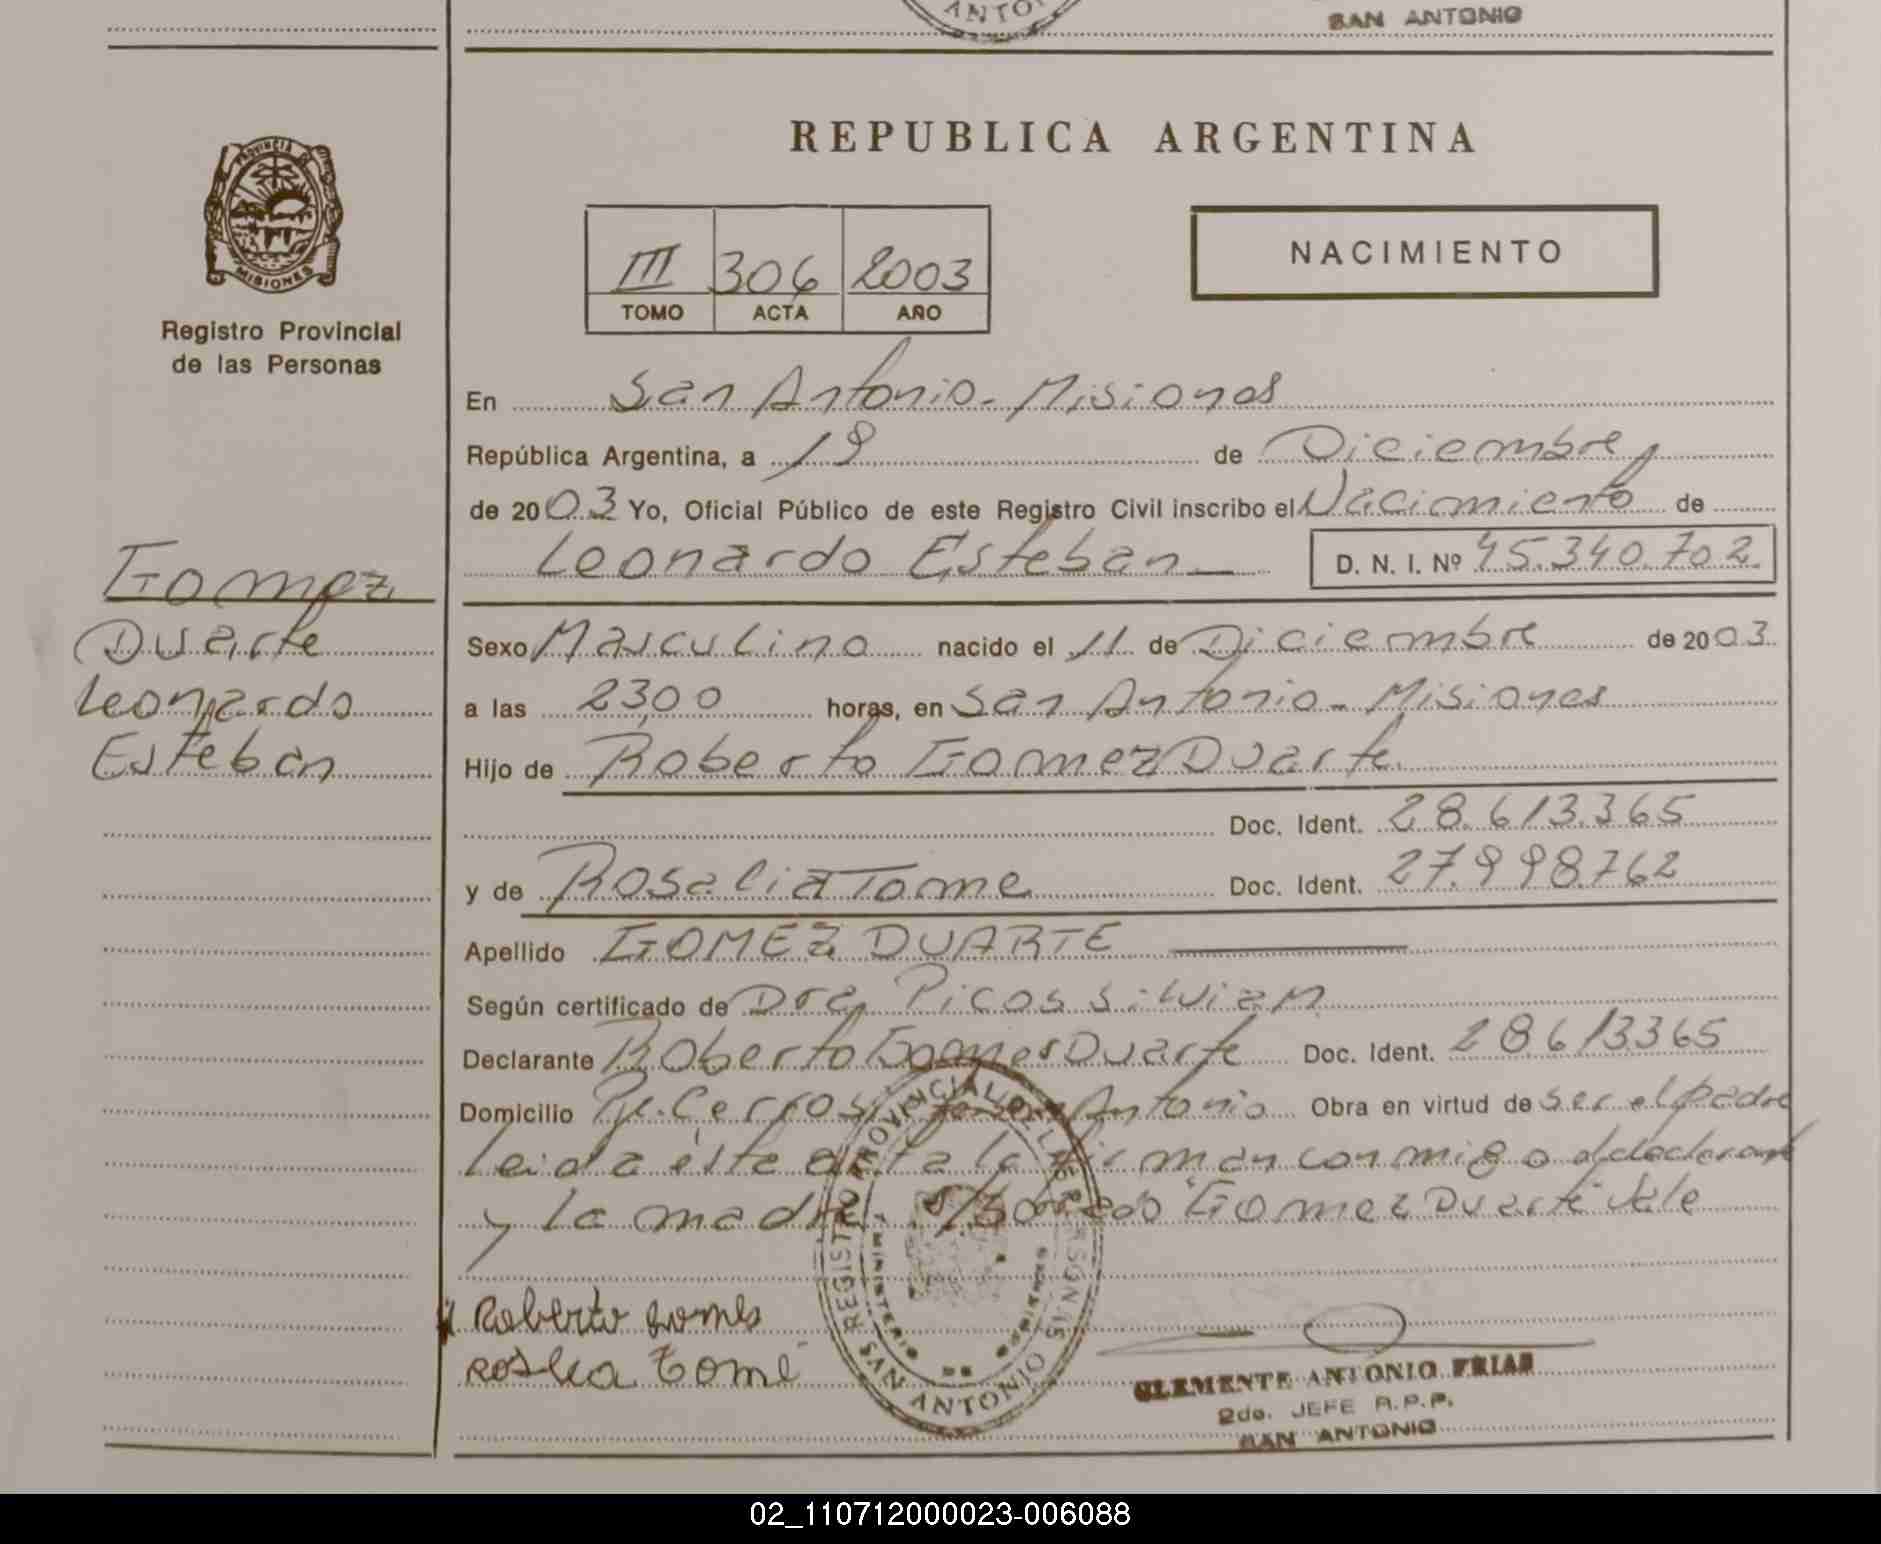 ANTO
SAN ANTONIO
PROVINCIA DE
MISIONES
Registro Provincial
de las Personas
REPUBLICA ARGENTINA
III 306 2003
TOMO ACTA AÑO
NACIMIENTO
En San Antonio - Misiones
República Argentina, a 19 de Diciembre
de 2003 Yo, Oficial Público de este Registro Civil inscribo el Nacimiento de
Leonardo Esteban D. N. I. Nº 45.340.702
Gomez
Duarte
Leonardo
Esteban
Sexo Masculino nacido el 11 de Diciembre de 2003
a las 23,00 horas, en San Antonio - Misiones
Hijo de Roberto Gomez Duarte
Doc. Ident. 28.613.365
y de Rosalia Tome Doc. Ident. 27.998.762
Apellido GOMEZ DUARTE
Según certificado de Dra Picos
Declarante Roberto Gomes Duarte Doc. Ident. 28613365
Domicilio Pje. Cerros Antonio Obra en virtud de ser el padre
Leida este acta la firman conmigo el declarante
y la madre. S/ borrado "Gomez Duarte" Vale
Roberto Gomes
Roslia Tomé
REGISTRO PROVINCIAL DE LAS PERSONAS
MINISTERIO
SAN ANTONIO
CLEMENTE ANTONIO FRIAS
2do. JEFE R.P.P.
SAN ANTONIO
02_110712000023-006088